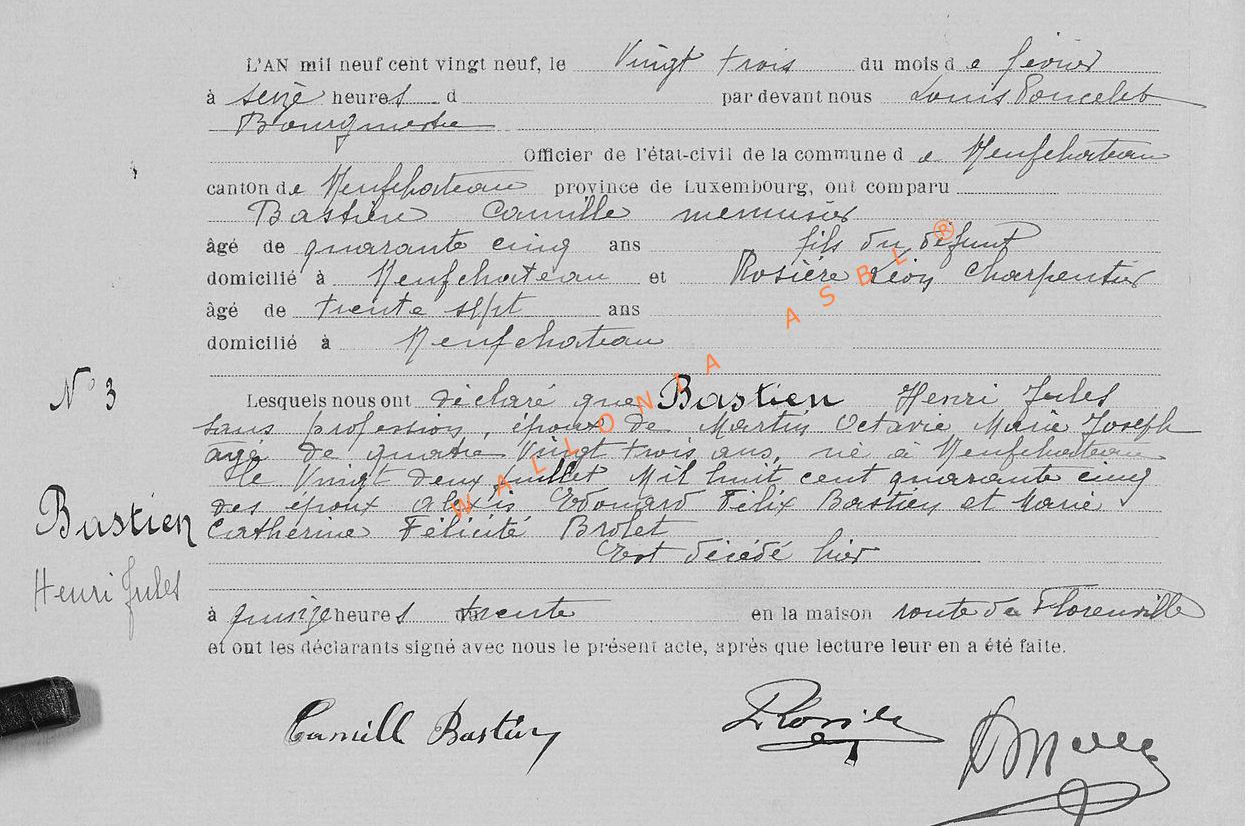 L'AN mil neuf cent vingt neuf, le Vingt trois du mois de février
à seize heures d par devant nous Louis Poncelet
Bourgmestre
Officier de l'état-civil de la commune de Neufchateau
canton de Neufchateau province de Luxembourg, ont comparu
Bastien Camille menuisier
âgé de quarante cinq ans fils du défunt
domicilié à Neufchateau et Rosière Léon Charpentier
âgé de trente sept ans
domicilié à Neufchateau
N° 3
Lesquels nous ont déclaré que Bastien Henri Jules
sans profession, époux de Martin Octavie Marie Joseph
âgé de quatre Vingt trois ans, né à Neufchateau
le Vingt deux juillet Mil huit cent quarante cinq
des époux Alexis Edouard Félix Bastien et Marie
Bastien
Catherine Félicité Brolet
Est décédé hier
Henri Jules
à quinze heures trente en la maison route de Florenville
et ont les déclarants signé avec nous le présent acte, après que lecture leur en a été faite.
Camill Bastien
WALLONIA ASBL ®